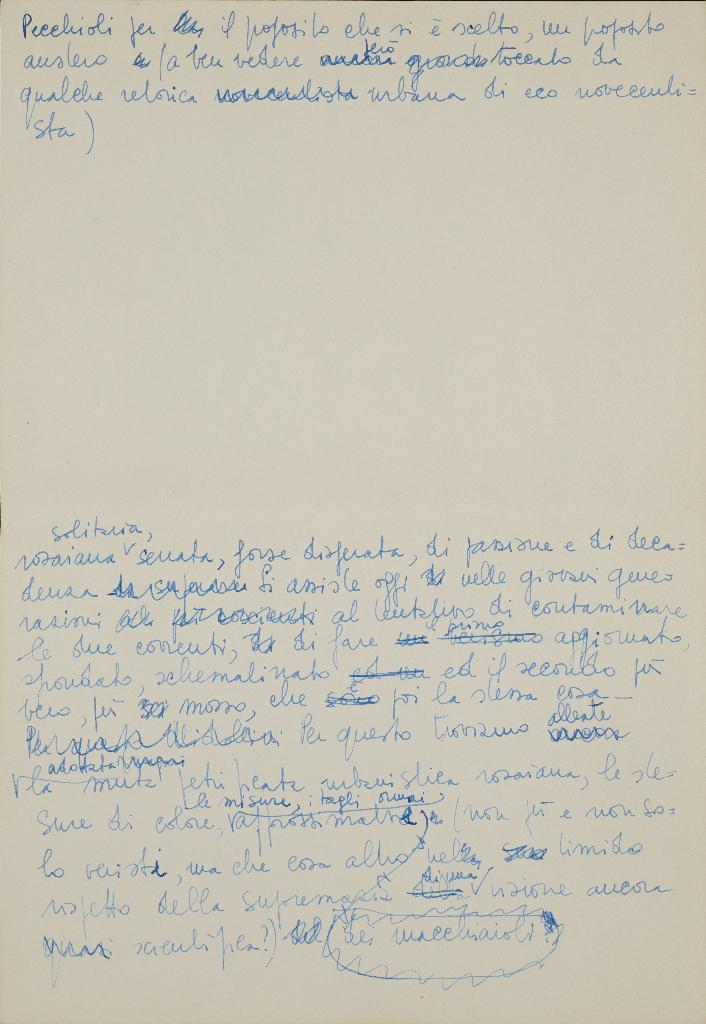 Pecchioli per il proposito che si è scelto, un proposito
austero (a ben vedere però toccato da
qualche retorica novecentista urbana di eco novecenti=
sta)
solitaria,
rosaiana serrata, forse disperata, di passione e di deca=
denza Si assiste oggi nelle giovani gene
razioni al tentativo di contaminare
le due correnti, di fare il primo aggiornato,
sfrondato, schematizzato ed il secondo più
vero, più mosso, che poi la stessa cosa —
Per questo troviamo
alleate
la muta pietrificata urbanistica rosaiana, le ste=
le misure, i tagli ormai
sure di colore, approssimative (non più e non so=
lo veristi, ma che cosa altro nel timido
di una
rispetto della supremazia visione ancora
quasi scientifica?) dei macchiaioli?